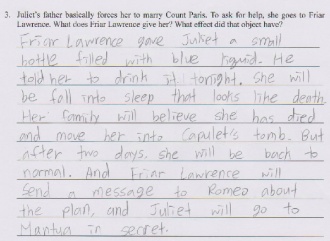 3. Juliet's father basically forces her to marry Count Paris. To ask for help, she goes to Friar
Lawrence. What does Friar Lawrence give her? What effect did that object have?
Friar Lawrence gave Juliet a small
bottle filled with blue liquid. He
told her to drink it tonight. she will
be fall into sleep that looks like death.
Her family will believe she has died
and move her into Capulet's tomb. But
after two days, she will be back to
normal. And Friar Lawrence will
send a message to Romeo about
the plan, and Juliet will go to
Mantua in secret.